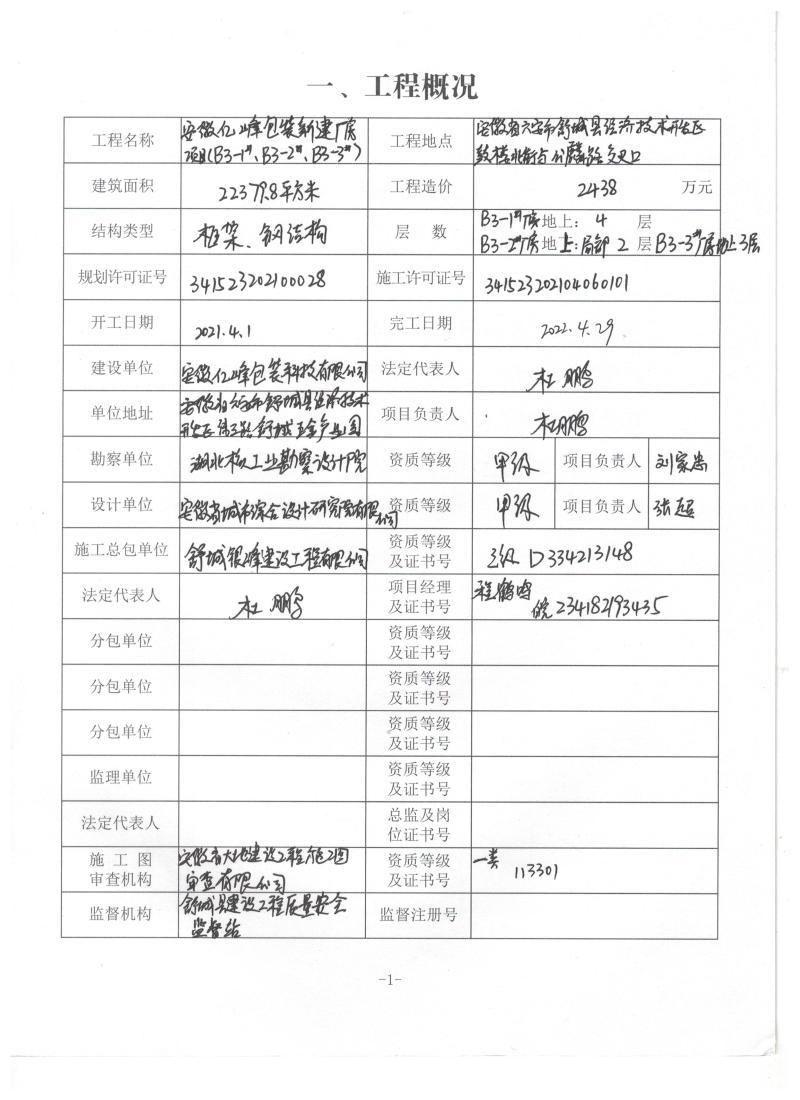 一、工程概况
工程名称 安徽亿峰包装新建厂房项目(B3-1#、B3-2#、B3-3#) 工程地点 安徽省六安市舒城县经济技术开发区鼓楼北街与 路交叉口
建筑面积 22379.8平方米 工程造价 2438 万元
结构类型 框架、钢结构 层 数 B3-1#厂房地上: 4 层
B3-2#厂房地上:局部 2 层 B3-3#厂房地上3层
规划许可证号 341523202100028 施工许可证号 341523202104060101
开工日期 2021.4.1 完工日期 2022.4.29
建设单位 安徽亿峰包装科技有限公司 法定代表人 杜鹏
单位地址 安徽省六安市舒城县经济技术开发区 路舒城 产业园 项目负责人 杜鹏
勘察单位 湖北核工业勘察设计院 资质等级 甲级 项目负责人 刘家忠
设计单位 安徽省城市综合设计研究院有限公司 资质等级 甲级 项目负责人 张超
施工总包单位 舒城银峰建设工程有限公司 资质等级及证书号 三级 D334213148
法定代表人 杜鹏 项目经理及证书号 程鹤鸣
皖234182193435
分包单位 资质等级及证书号
分包单位 资质等级及证书号
分包单位 资质等级及证书号
监理单位 资质等级及证书号
法定代表人 总监及岗位证书号
施工图审查机构 安徽省大地建设工程施工图审查有限公司 资质等级及证书号 一类 113301
监督机构 舒城县建设工程质量安全监督站 监督注册号
-1-